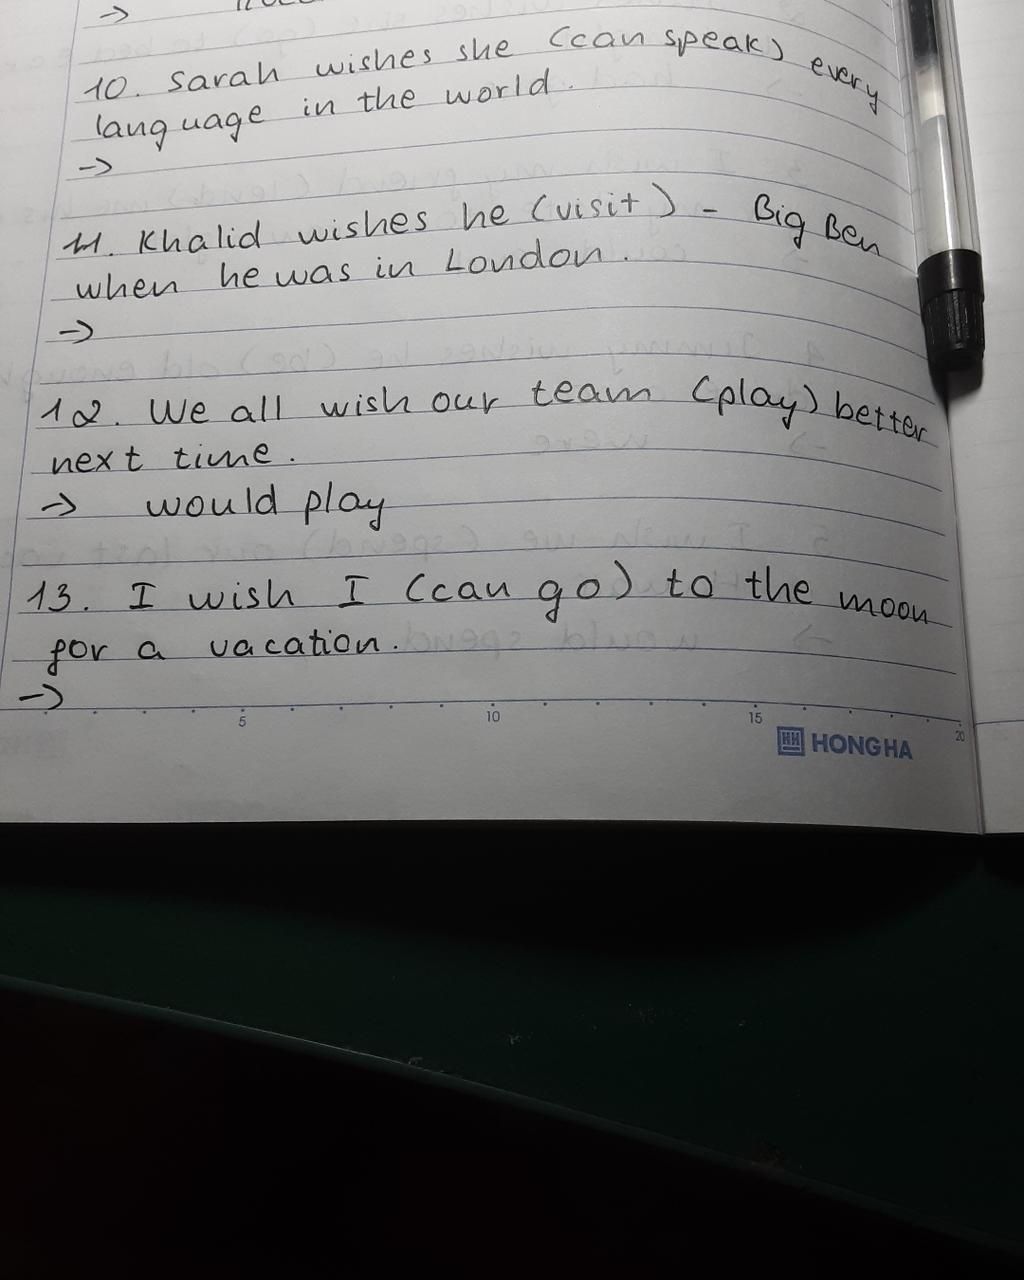 →
10. Sarah wishes she (can speak) every
language in the world.
→
11. Khalid wishes he (visit) - Big Ben
when he was in London.
→
12. We all wish our team (play) better
next time.
→ would play
13. I wish I (can go) to the moon
for a vacation.
→
5 10 15 20
HH HONG HA